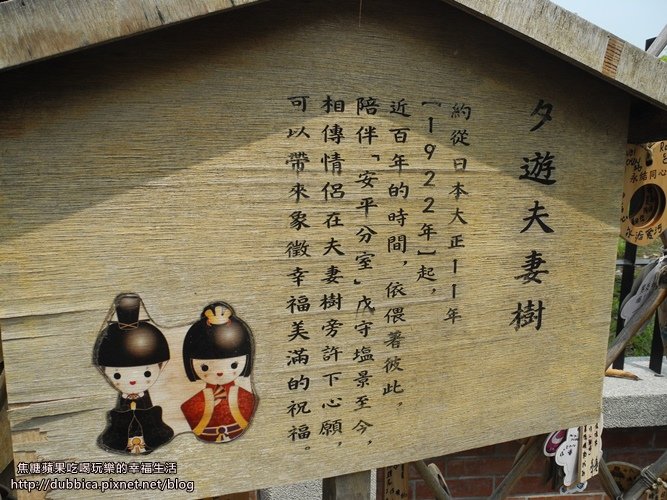 夕遊夫妻樹
約從日本大正11年
【1922年】起，
近百年的時間，依偎著彼此，
陪伴「安平分室」戍守塩景至今，
相傳情侶在夫妻樹旁許下心願，
可以帶來象徵幸福美滿的祝福。
永結同心
焦糖蘋果吃喝玩樂的幸福生活
http://dubbica.pixnet.net/blog